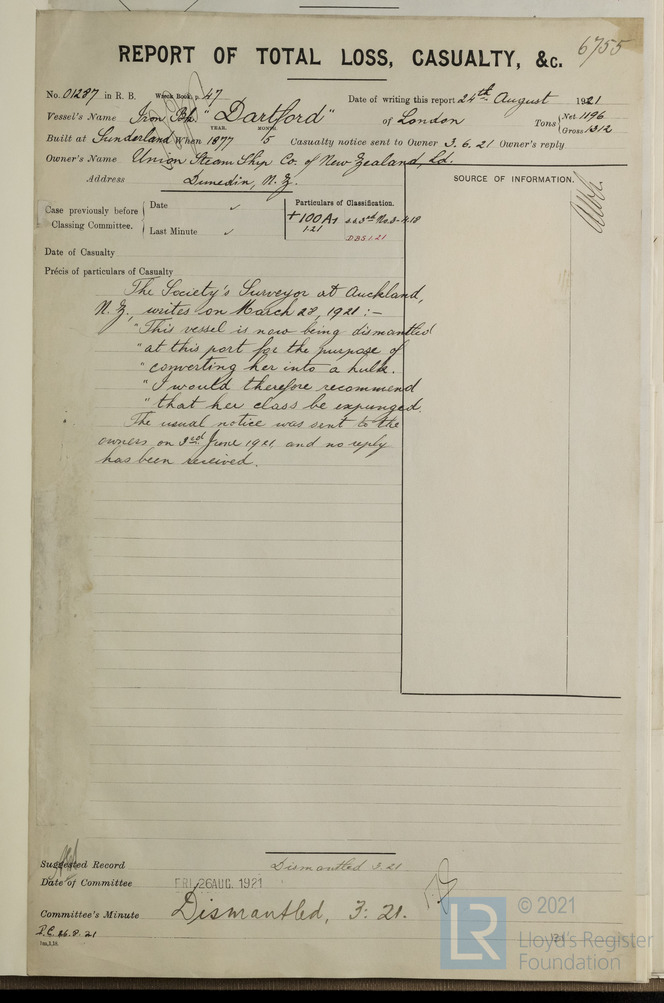 6755
REPORT OF TOTAL LOSS, CASUALTY, &c.
No. 01287 in R. B. Wreck Book, p. 47 Date of writing this report 24th August 1921
Vessel's Name Iron Bk "Dartford" of London Tons { Net 1196 Gross 1312
YEAR. MONTH.
Built at Sunderland When 1877 5 Casualty notice sent to Owner 3.6.21 Owner's reply
Owner's Name Union Steam Ship Co. of New Zealand, Ld.
Address Dunedin, N.Z.
SOURCE OF INFORMATION.
Case previously before Classing Committee. { Date ✓
Last Minute ✓
Particulars of Classification.
+100A1 s.s. 3rd No.3-4.18
1.21
DBS 1.21
Date of Casualty
Précis of particulars of Casualty
The Society's Surveyor at Auckland,
N.Z., writes on March 28, 1921:-
"This vessel is now being dismantled
"at this port for the purpose of
"converting her into a hulk.
"I would therefore recommend
"that her class be expunged.
The usual notice was sent to the
owners on 3rd June 1921, and no reply
has been received.
Suggested Record Dismantled 3.21
Date of Committee FRI. 26 AUG. 1921
Committee's Minute Dismantled, 3.21.
26.8.21
© 2021
LR
Lloyd's Register
Foundation